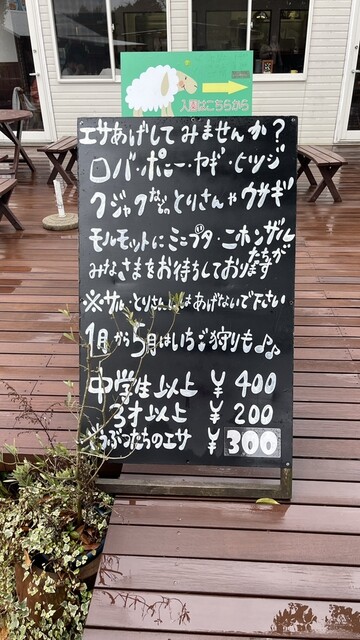 入園はこちらから
エサあげしてみませんか?
ロバ・ポニー・ヤギ・ヒツジ
クジャクなどのとりさんやウサギ
モルモットにミニブタ・ニホンザル
たちが
みなさまをお待ちしております
※サル、とりさんにはあげないで下さい
1月から5月はいちご狩りも♪♪
中学生以上 ¥400
3才以上 ¥200
どうぶつたちのエサ ¥300